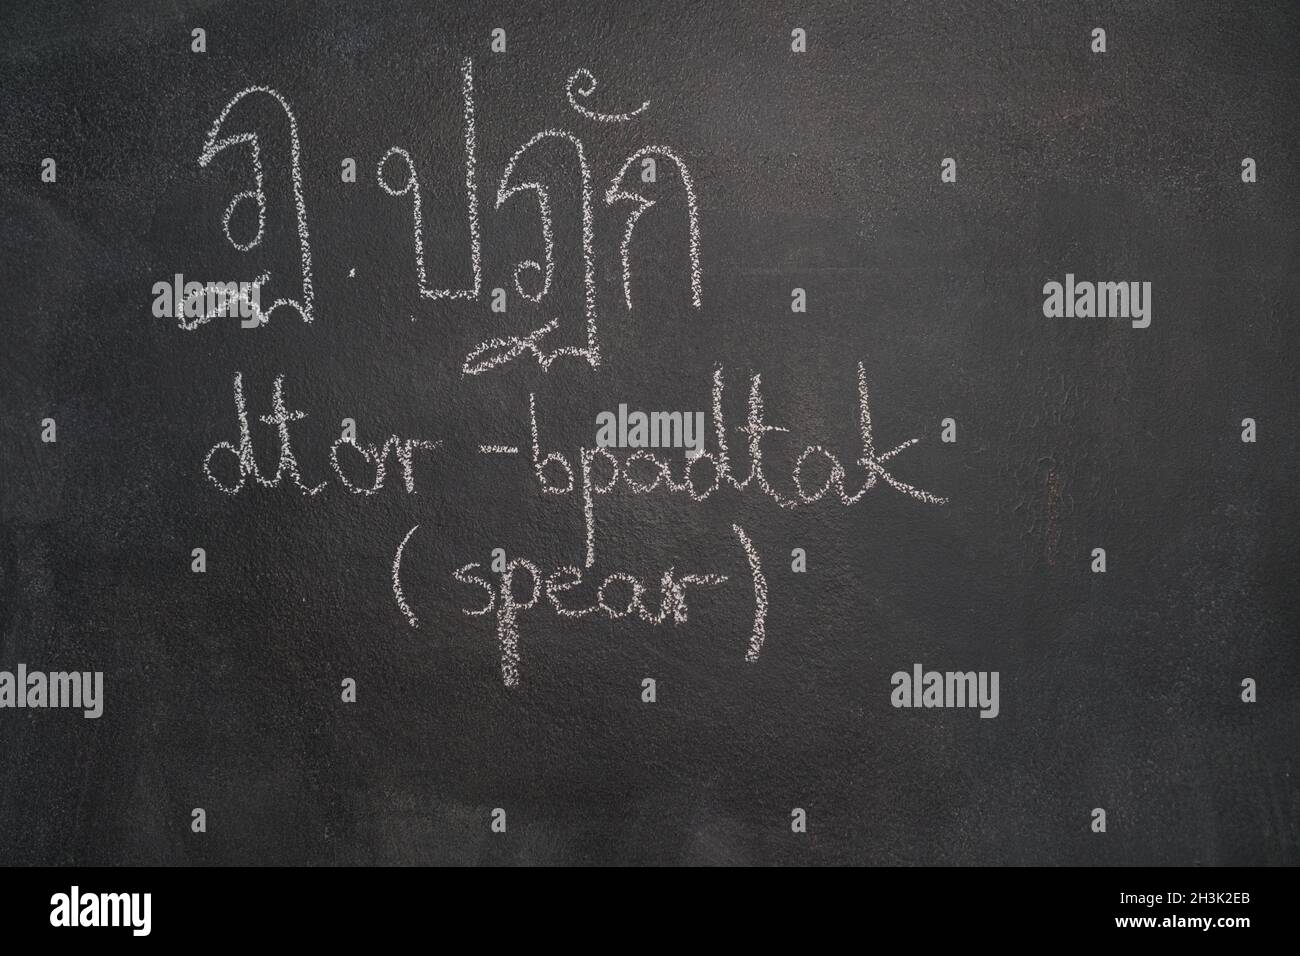 ฏ.ปฏัก
dtor-bpadtak
(spear)
alamy
alamy
alamy
alamy
alamy
alamy
Image ID: 2H3K2EB
www.alamy.com